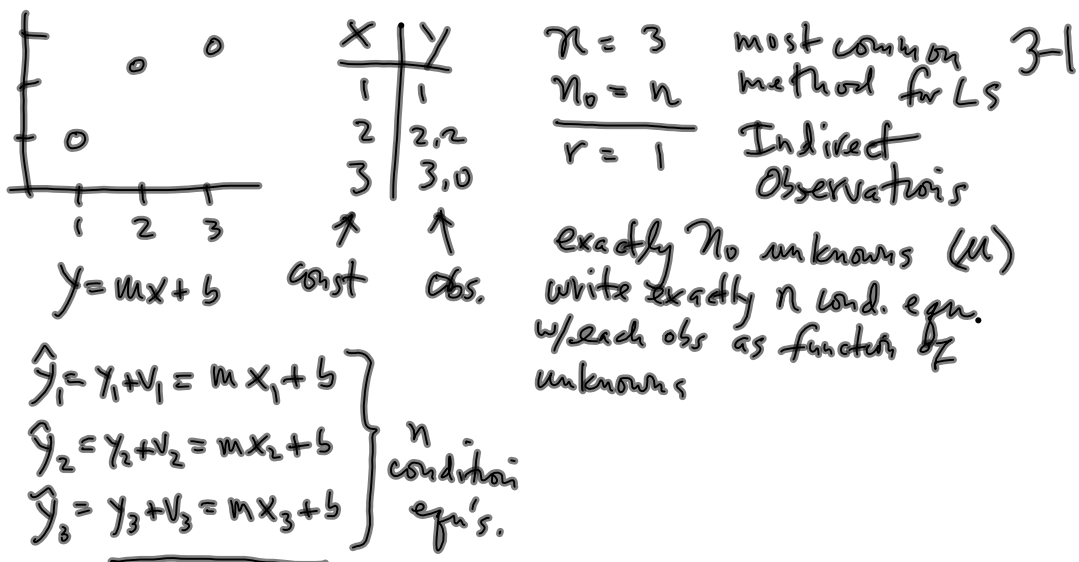 3-1
1 2 3
X Y
1 1
2 2,2
3 3,0
const obs.
y = mx + b
n = 3
n₀ = n
r = 1
most common
method for LS
Indirect
Observations
exactly n₀ unknowns (u)
write exactly n cond. eqn.
w/each obs as function of
unknowns
ŷ₁ = y₁+v₁ = mx₁+b
ŷ₂ = y₂+v₂ = mx₂+b
ŷ₃ = y₃+v₃ = mx₃+b
n
condition
eqn's.